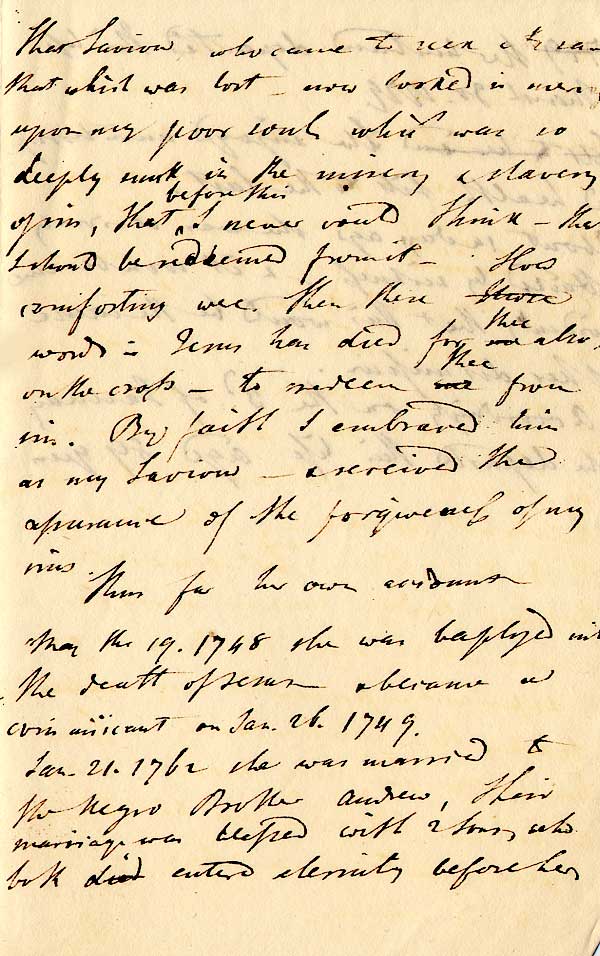 that Saviour who came to seek & to sa-
that which was lost – now looked in mercy
upon my poor soul, which was so
deeply sunk in the misery & slavery
before this
of sin, that I never could think – that
I should be redeemed from it – How
comforting were then these those
thee
words = Jesus has died for me also,
thee
on the cross – to redeem me from
sin. By faith I embraced him
as my Saviour – & received the
assurance of the forgiveness of my
sins.
Thus far her own account
May the 19. 1748 she was baptized into
the death of Jesus & became a
communicant on Jan. 26. 1749.
Jan. 21. 1762 she was married to
the Negro Brother Andrew, their
marriage was blessed with 2 Sons, who
both died entered eternity before her